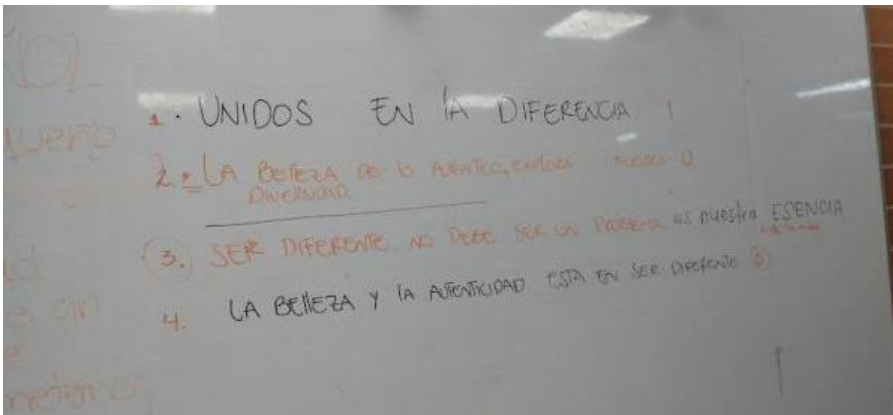 1. UNIDOS EN LA DIFERENCIA 1
2. LA BELLEZA DE lO AUTENTICO, EXPLORA NUESTRA 0
DIVERSIDAD.
3. SER DIFERENTE NO DEBE SER UN PROBLEMA es nuestra ESENCIA
4. LA BELLEZA Y lA AUTENTICIDAD ESTA EN SER DIFERENTE